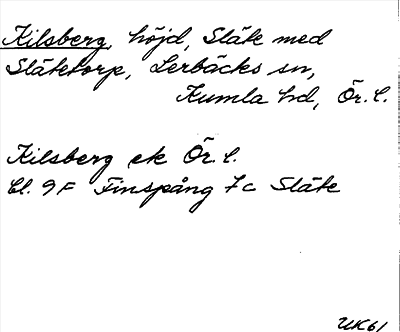 Kilsberg, höjd, Släte med
Slätetorp, Lerbäcks sn,
Kumla hd, Ör. l.
Kilsberg ek Ör. l.
Bl. 9F Finspång 7c Släte
UK61